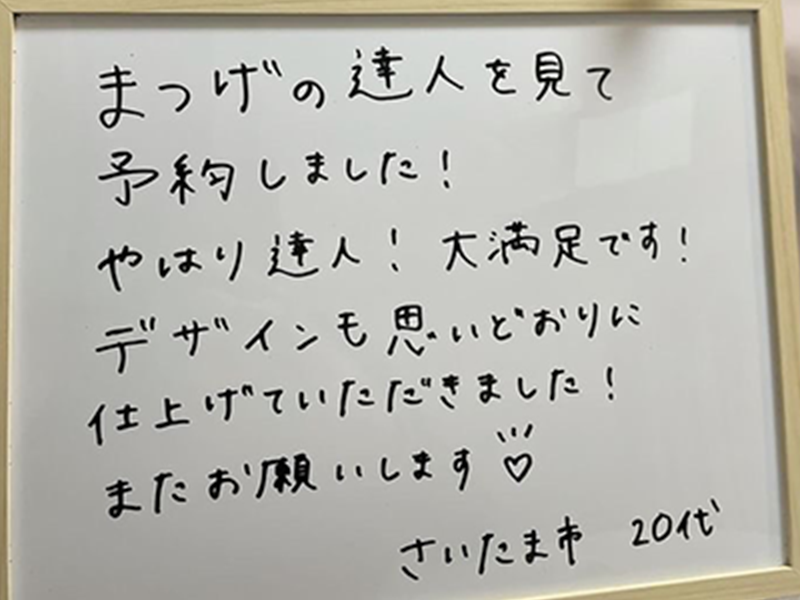 まつげの達人を見て
予約しました！
やはり達人！ 大満足です！
デザインも思いどおりに
仕上げていただきました！
またお願いします♡
さいたま市 20代